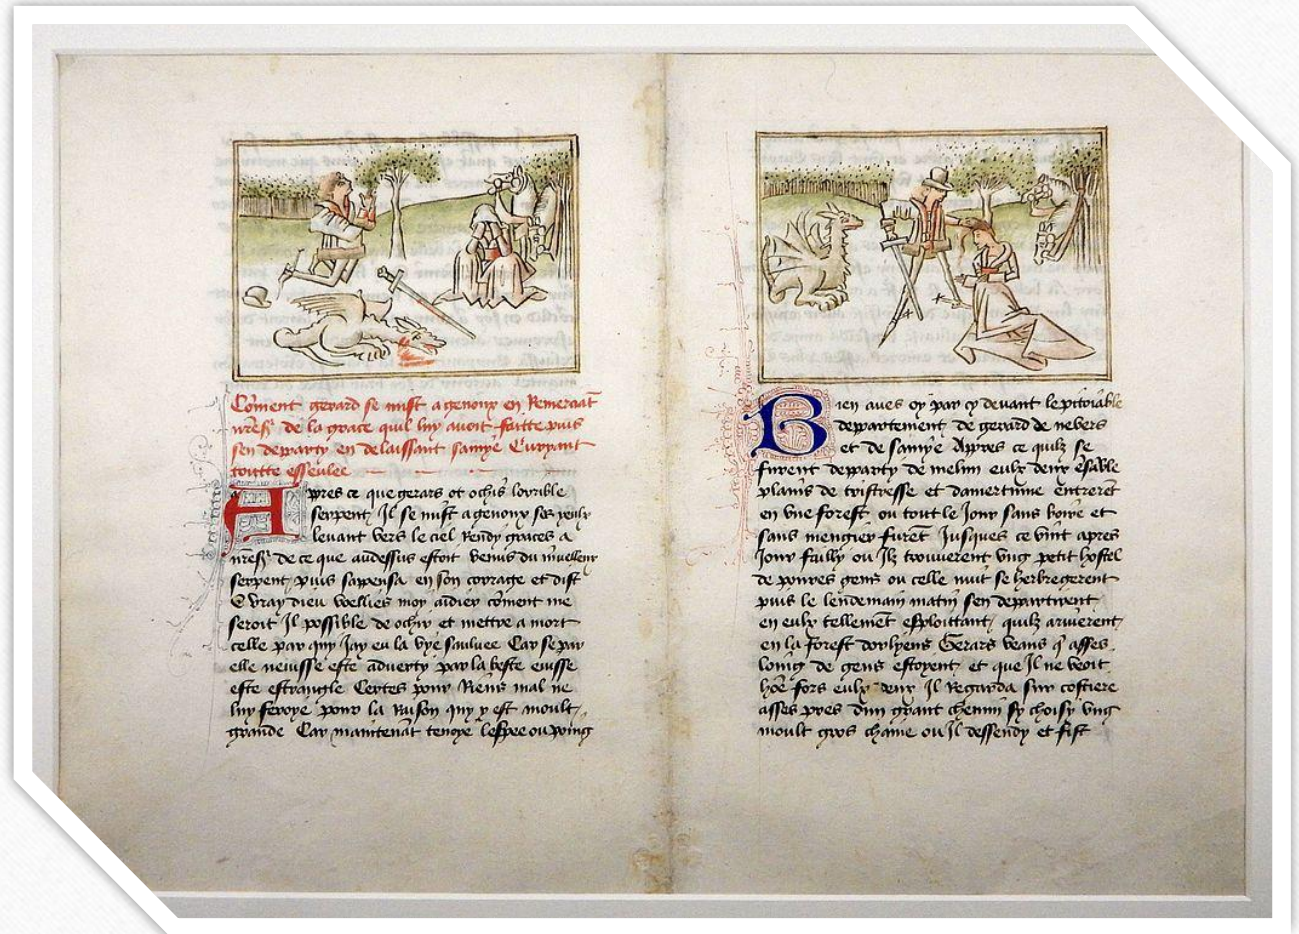 Coment gerard se mist a genoux en Remerciat
nresr de la grace quil luy auoit faitte puis
sen departy en delaissant
toutte esseulee
Apres ce que gerars ot ochis lorrible
serpent Il se mist a genoux ses yeulx
leuant vers le ciel Rendy graces a
nresr de ce que audessus estoit venus du
serpent puis sappensa en son corage et dist
E vray dieu voellies moy aidier coment me
seroit Il possible de ochir et mettre a mort
celle par quy Jay eu la vye sauluee Car se par
elle neuisse este aduerty par la beste euisse
este estrangle Certes pour Riens mal ne
luy feroye pour la Raison quy y est moult
grande Car maintenat tenoye lespee ou poing
Bien aues oy par cy deuant le pitoiable
departement de gerard de neuers
et de Apres ce quilz se
furent departy de melun eulx deux esable
plains de tristresse et damertume entreret
en vne forest ou tout le Jour sans boire et
sans mengier furet Jusques ce vint apres
Jour failly ou Ilz trouuerent vng petit hostel
de poures gens ou celle nuit se herbregerent
puis le lendemain matin sen departirent
en eulx tellemet esploittant quilz ariuerent
en la forest dorlyens Gerars veans q asses
loing de gens estoyent et que Il ne veoit
hoe fors eulx deux Il Regarda sur costiere
asses pres dun grant chemin sy choisy vng
moult gros chaine ou Il dessendy et fist